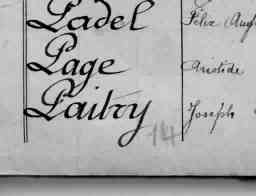 Padel Félix Aug
Page Aristide
Paitry Joseph
14